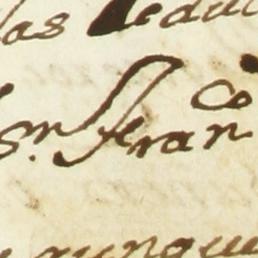 las deduc
Sr. Franco
runque